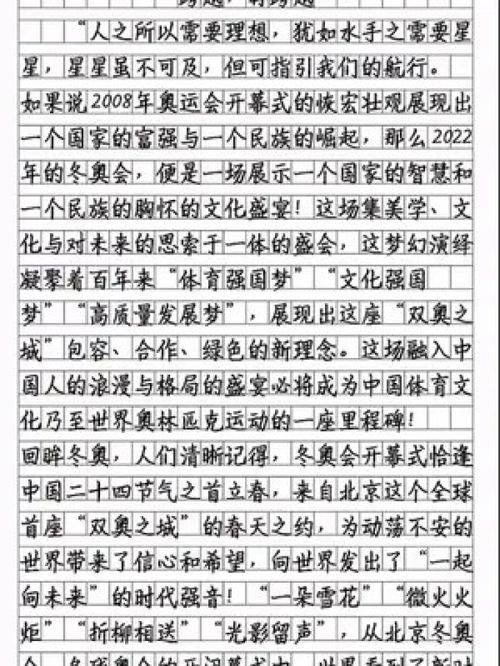 跨越，再跨越
“人之所以需要理想，犹如水手之需要星
星，星星虽不可及，但可指引我们的航行。
如果说2008年奥运会开幕式的恢宏壮观展现出
一个国家的富强与一个民族的崛起，那么2022
年的冬奥会，便是一场展示一个国家的智慧和
一个民族的胸怀的文化盛宴！这场集美学、文
化与对未来的思索于一体的盛会，这梦幻演绎
凝聚着百年来“体育强国梦”“文化强国
梦”“高质量发展梦”，展现出这座“双奥之
城”包容、合作、绿色的新理念。这场融入中
国人的浪漫与格局的盛宴必将成为中国体育文
化乃至世界奥林匹克运动的一座里程碑！
回眸冬奥，人们清晰记得，冬奥会开幕式恰逢
中国二十四节气之首立春，来自北京这个全球
首座“双奥之城”的春天之约，为动荡不安的
世界带来了信心和希望，向世界发出了“一起
向未来”的时代强音！“一朵雪花”“微火火
炬”“折柳相送”“光影留声”，从北京冬奥